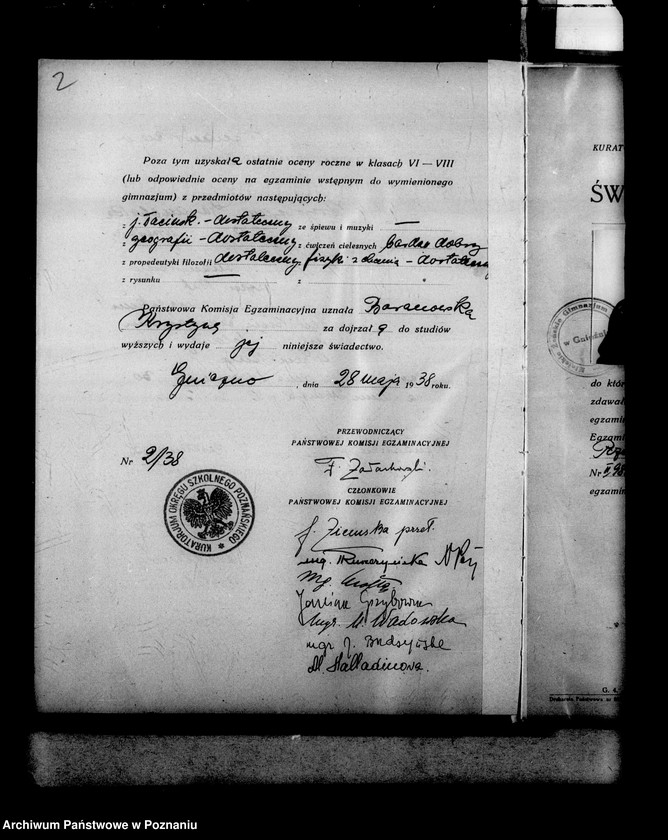 2
Poza tym uzyskała ostatnie oceny roczne w klasach VI — VIII
(lub odpowiednie oceny na egzaminie wstępnym do wymienionego
gimnazjum) z przedmiotów następujących:
z j. łacińsk. - dostateczny ze śpiewu i muzyki —
z geografii - dostateczny z ćwiczeń cielesnych bardzo dobry
z propedeutyki filozofii dostateczny z fizyki z chemią - dostateczny
z rysunku — z
Państwowa Komisja Egzaminacyjna uznała Baranowską
Krystynę za dojrzałą do studiów
wyższych i wydaje jej niniejsze świadectwo.
Gniezno, dnia 28 maja 1938 roku.
PRZEWODNICZĄCY
PAŃSTWOWEJ KOMISJI EGZAMINACYJNEJ
Nr 2/38
CZŁONKOWIE
PAŃSTWOWEJ KOMISJI EGZAMINACYJNEJ
KURATORJUM OKRĘGU SZKOLNEGO POZNAŃSKIEGO
J. Ziemska przeł.
mg.
Mg.
Janina Grzybowna
mgr. M. Wadowska
mgr J.
M. Halladinowa.
KURAT
ŚW
w Gnieźnie
do któr
zdawał
egzamin
Egzami
Nr
egzamin
G. 4.
Archiwum Państwowe w Poznaniu